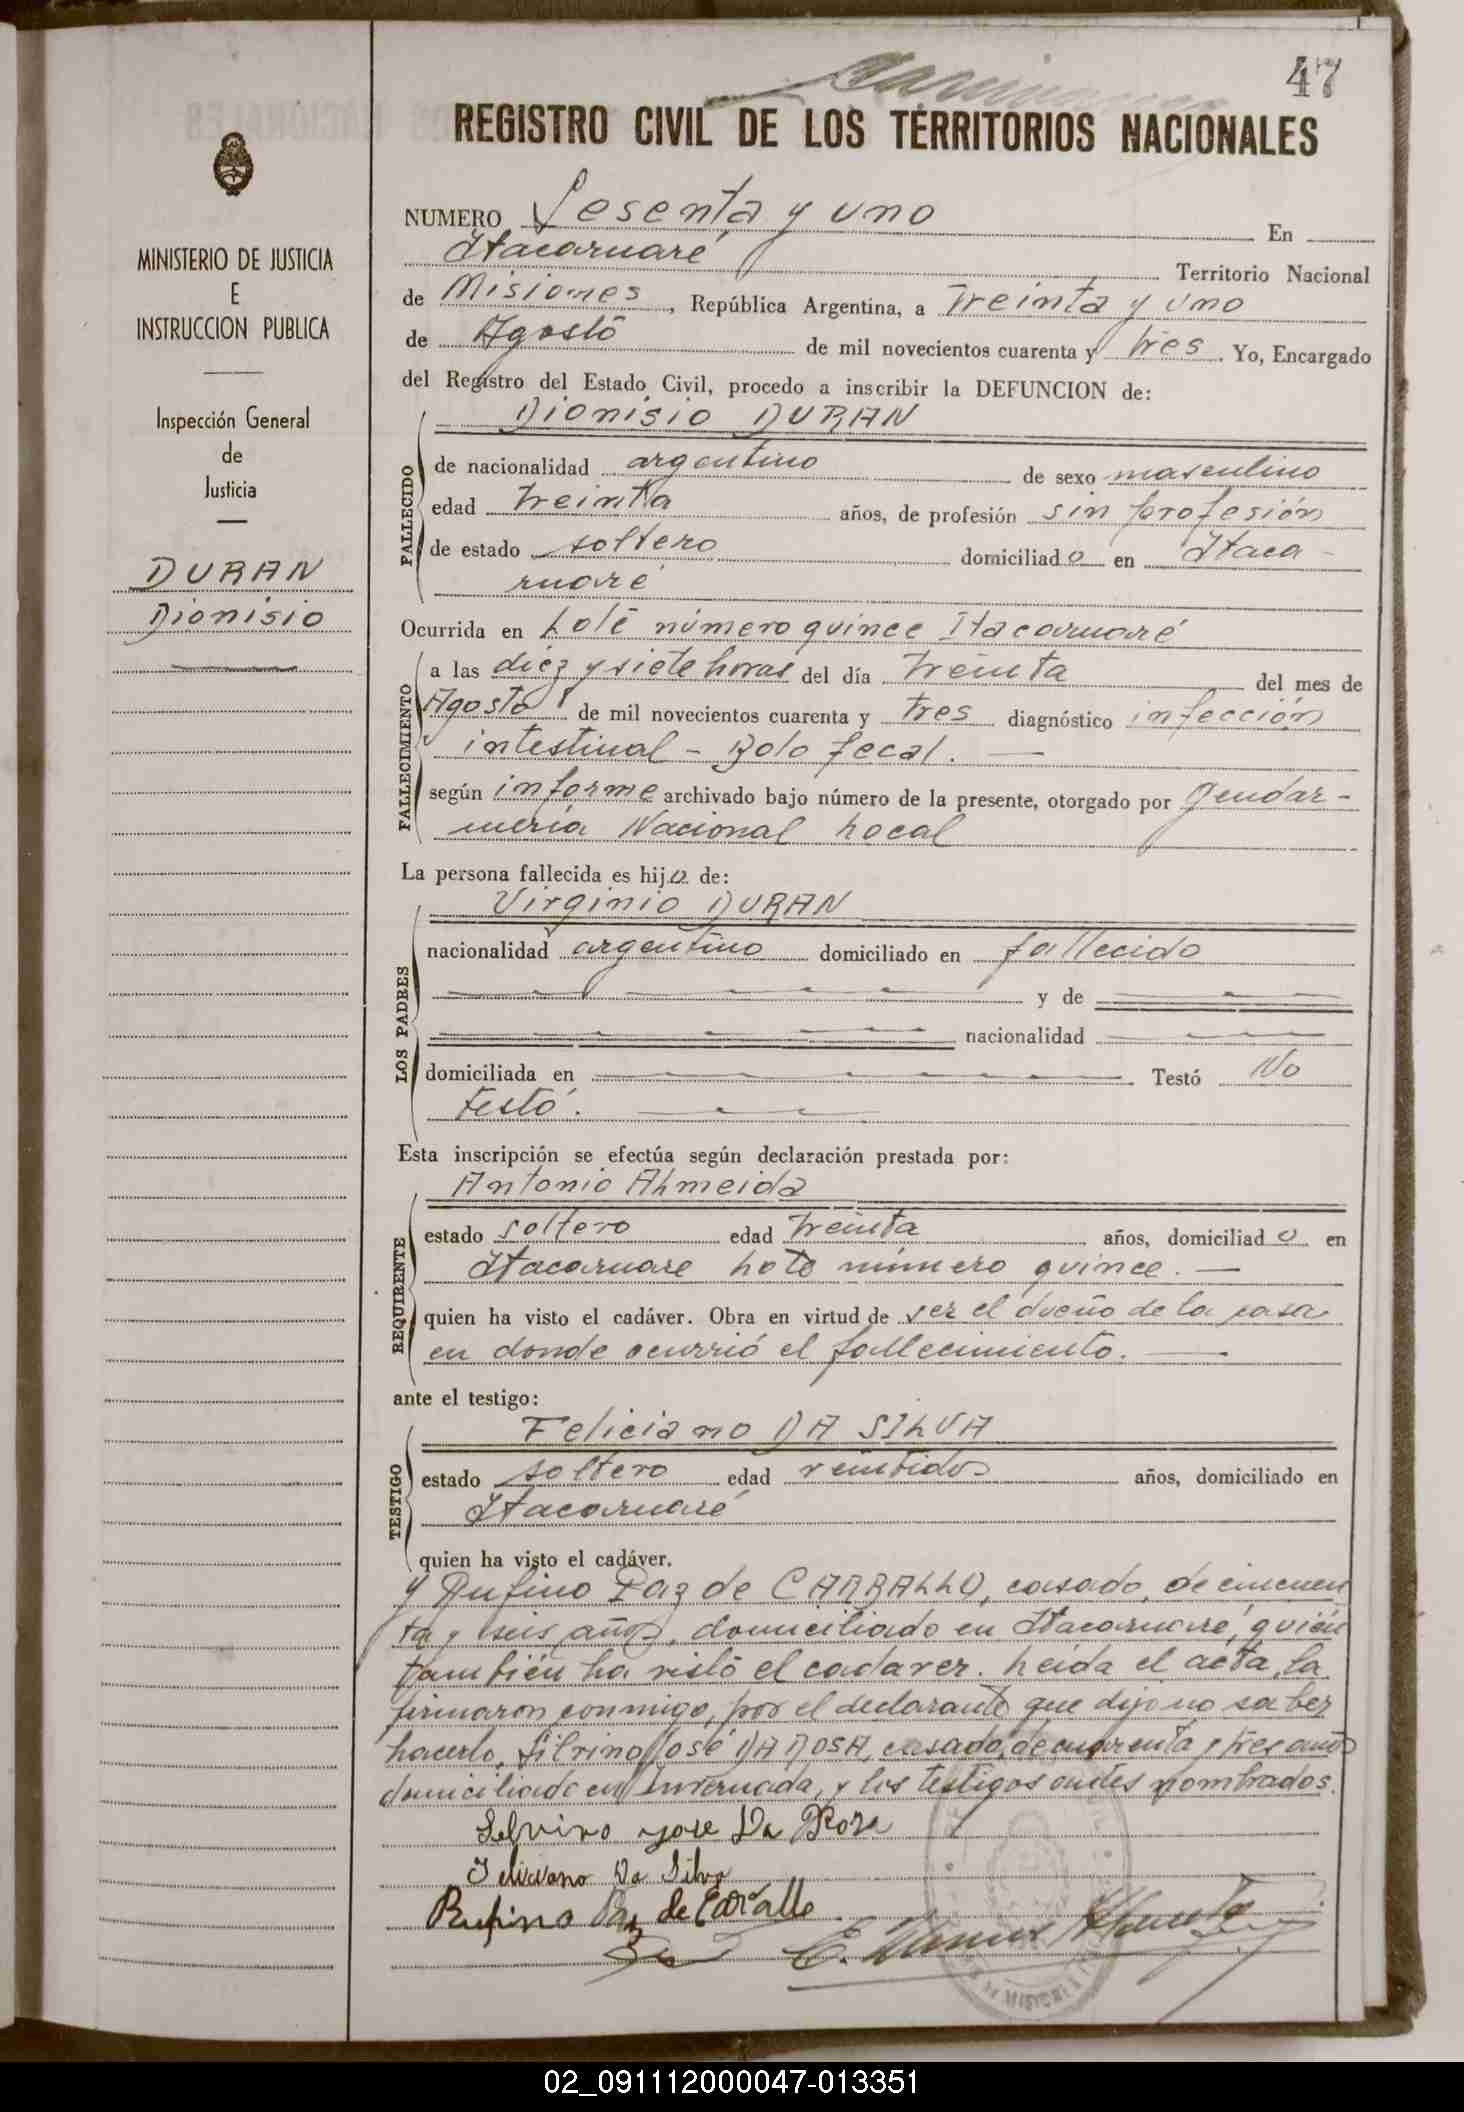 47
REGISTRO CIVIL DE LOS TERRITORIOS NACIONALES
MINISTERIO DE JUSTICIA
E
INSTRUCCION PUBLICA
Inspección General
de
Justicia
DURAN
Dionisio
NUMERO Sesenta y uno En
Itacaruaré Territorio Nacional
de Misiones, República Argentina, a treinta y uno
de Agosto de mil novecientos cuarenta y tres. Yo, Encargado
del Registro del Estado Civil, procedo a inscribir la DEFUNCION de:
Dionisio DURAN
FALLECIDO
de nacionalidad argentino de sexo masculino
edad treinta años, de profesión sin profesión
de estado soltero domiciliado en Itaca-
ruaré
Ocurrida en Lote número quince Itacaruaré
FALLECIMIENTO
a las diez y siete horas del día treinta del mes de
Agosto de mil novecientos cuarenta y tres diagnóstico infección
intestinal - Bolo fecal.
según informe archivado bajo número de la presente, otorgado por Gendar-
mería Nacional Local
La persona fallecida es hijo de:
Virginio DURAN
LOS PADRES
nacionalidad argentino domiciliado en fallecido
y de
nacionalidad
domiciliada en Testó No
testó.
Esta inscripción se efectúa según declaración prestada por:
Antonio Almeida
REQUIRENTE
estado soltero edad treinta años, domiciliado en
Itacaruare Lote número quince.
quien ha visto el cadáver. Obra en virtud de ser el dueño de la casa
en donde ocurrió el fallecimiento.
ante el testigo:
Feliciano DA SILVA
TESTIGO
estado soltero edad veintidos años, domiciliado en
Itacaruaré
quien ha visto el cadáver.
y Rufino Paz de CARBALLO, casado, de cincuen
ta y seis años, domiciliado en Itacaruaré, quién
también ha visto el cadaver. Leída el acta, la
firmaron conmigo, por el declarante que dijo no saber
hacerlo, Silvino José DA ROSA, casado, de cuarenta y tres años
domiciliado en Invernada, y los testigos antes nombrados.
Selvino Jose Da Rosa
Feliciano Da Silva
Rufino Paz de Carballo
02_091112000047-013351